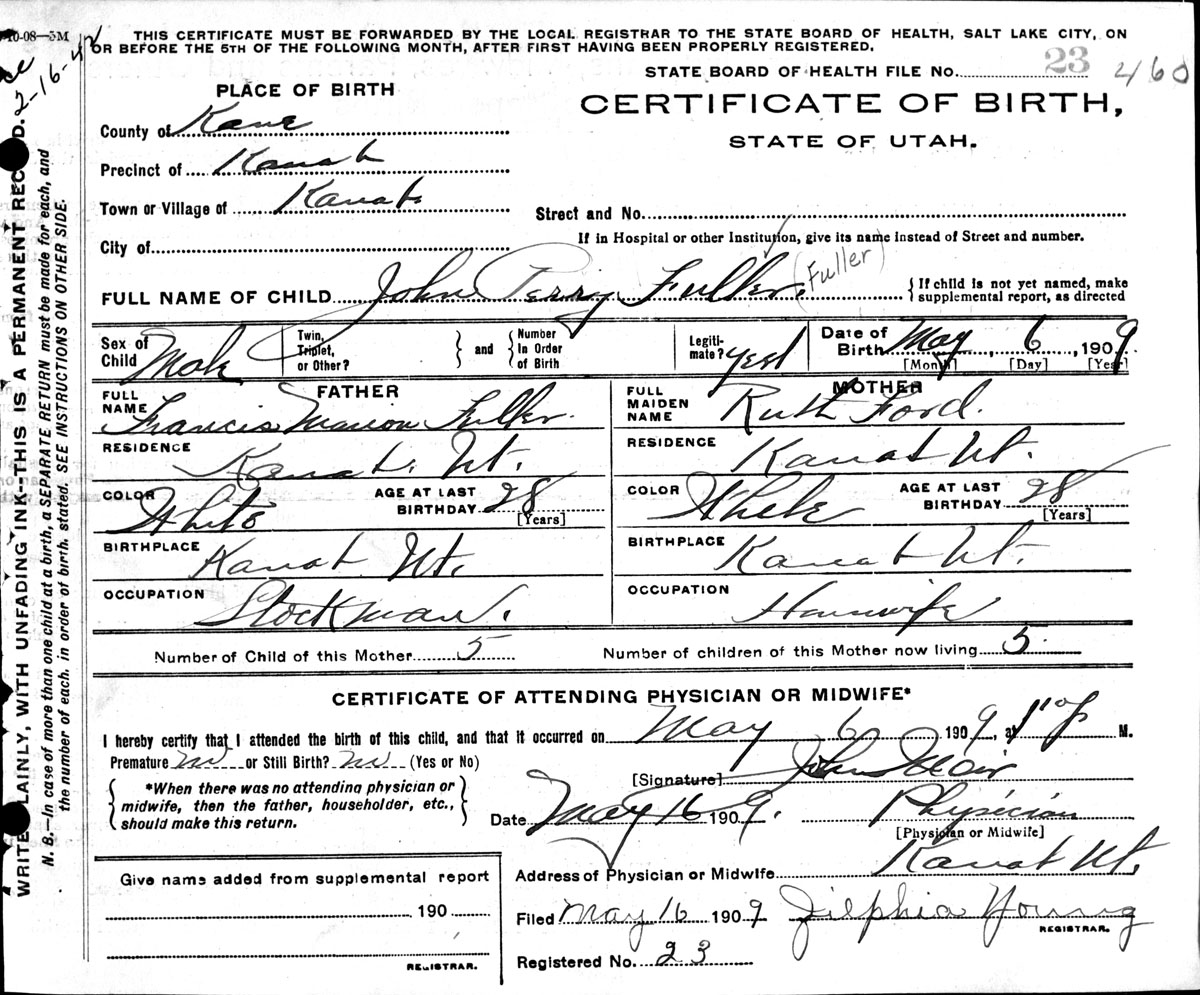 10-08—3M
THIS CERTIFICATE MUST BE FORWARDED BY THE LOCAL REGISTRAR TO THE STATE BOARD OF HEALTH, SALT LAKE CITY, ON
OR BEFORE THE 5TH OF THE FOLLOWING MONTH, AFTER FIRST HAVING BEEN PROPERLY REGISTERED.
2-16-42
STATE BOARD OF HEALTH FILE No. 23 460
CERTIFICATE OF BIRTH,
STATE OF UTAH.
PLACE OF BIRTH
County of Kane
Precinct of Kanab
Town or Village of Kanab
Street and No.
City of
If in Hospital or other Institution, give its name instead of Street and number.
FULL NAME OF CHILD John Perry Fuller (Fuller) { If child is not yet named, make supplemental report, as directed
Sex of Child Male
Twin, Triplet, or Other? } and { Number In Order of Birth
Legiti-mate? yes
Date of Birth May, 6, 1909
[Month] [Day] [Year]
FATHER
FULL NAME Francis Marion Fuller.
RESIDENCE Kanab. Ut.
COLOR White AGE AT LAST BIRTHDAY 28 [Years]
BIRTHPLACE Kanab Ut.
OCCUPATION Stockman.
MOTHER
FULL MAIDEN NAME Ruth Ford.
RESIDENCE Kanab Ut.
COLOR White AGE AT LAST BIRTHDAY 28 [Years]
BIRTHPLACE Kanab Ut.
OCCUPATION Housewife
Number of Child of this Mother 5 Number of children of this Mother now living 5
CERTIFICATE OF ATTENDING PHYSICIAN OR MIDWIFE*
I hereby certify that I attended the birth of this child, and that it occurred on May 6 1909, at P M.
Premature no or Still Birth? no (Yes or No)
[Signature] John
{ *When there was no attending physician or midwife, then the father, householder, etc., should make this return. }
Date May 16 1909. Physician
[Physician or Midwife]
Address of Physician or Midwife Kanab Ut.
Filed May 16 1909 Zilphia Young
REGISTRAR.
Registered No. 23
Give name added from supplemental report
190
REGISTRAR.
WRITE PLAINLY, WITH UNFADING INK--THIS IS A PERMANENT RECORD.
N. B.—In case of more than one child at a birth, a SEPARATE RETURN must be made for each, and
the number of each, in order of birth, stated. SEE INSTRUCTIONS ON OTHER SIDE.